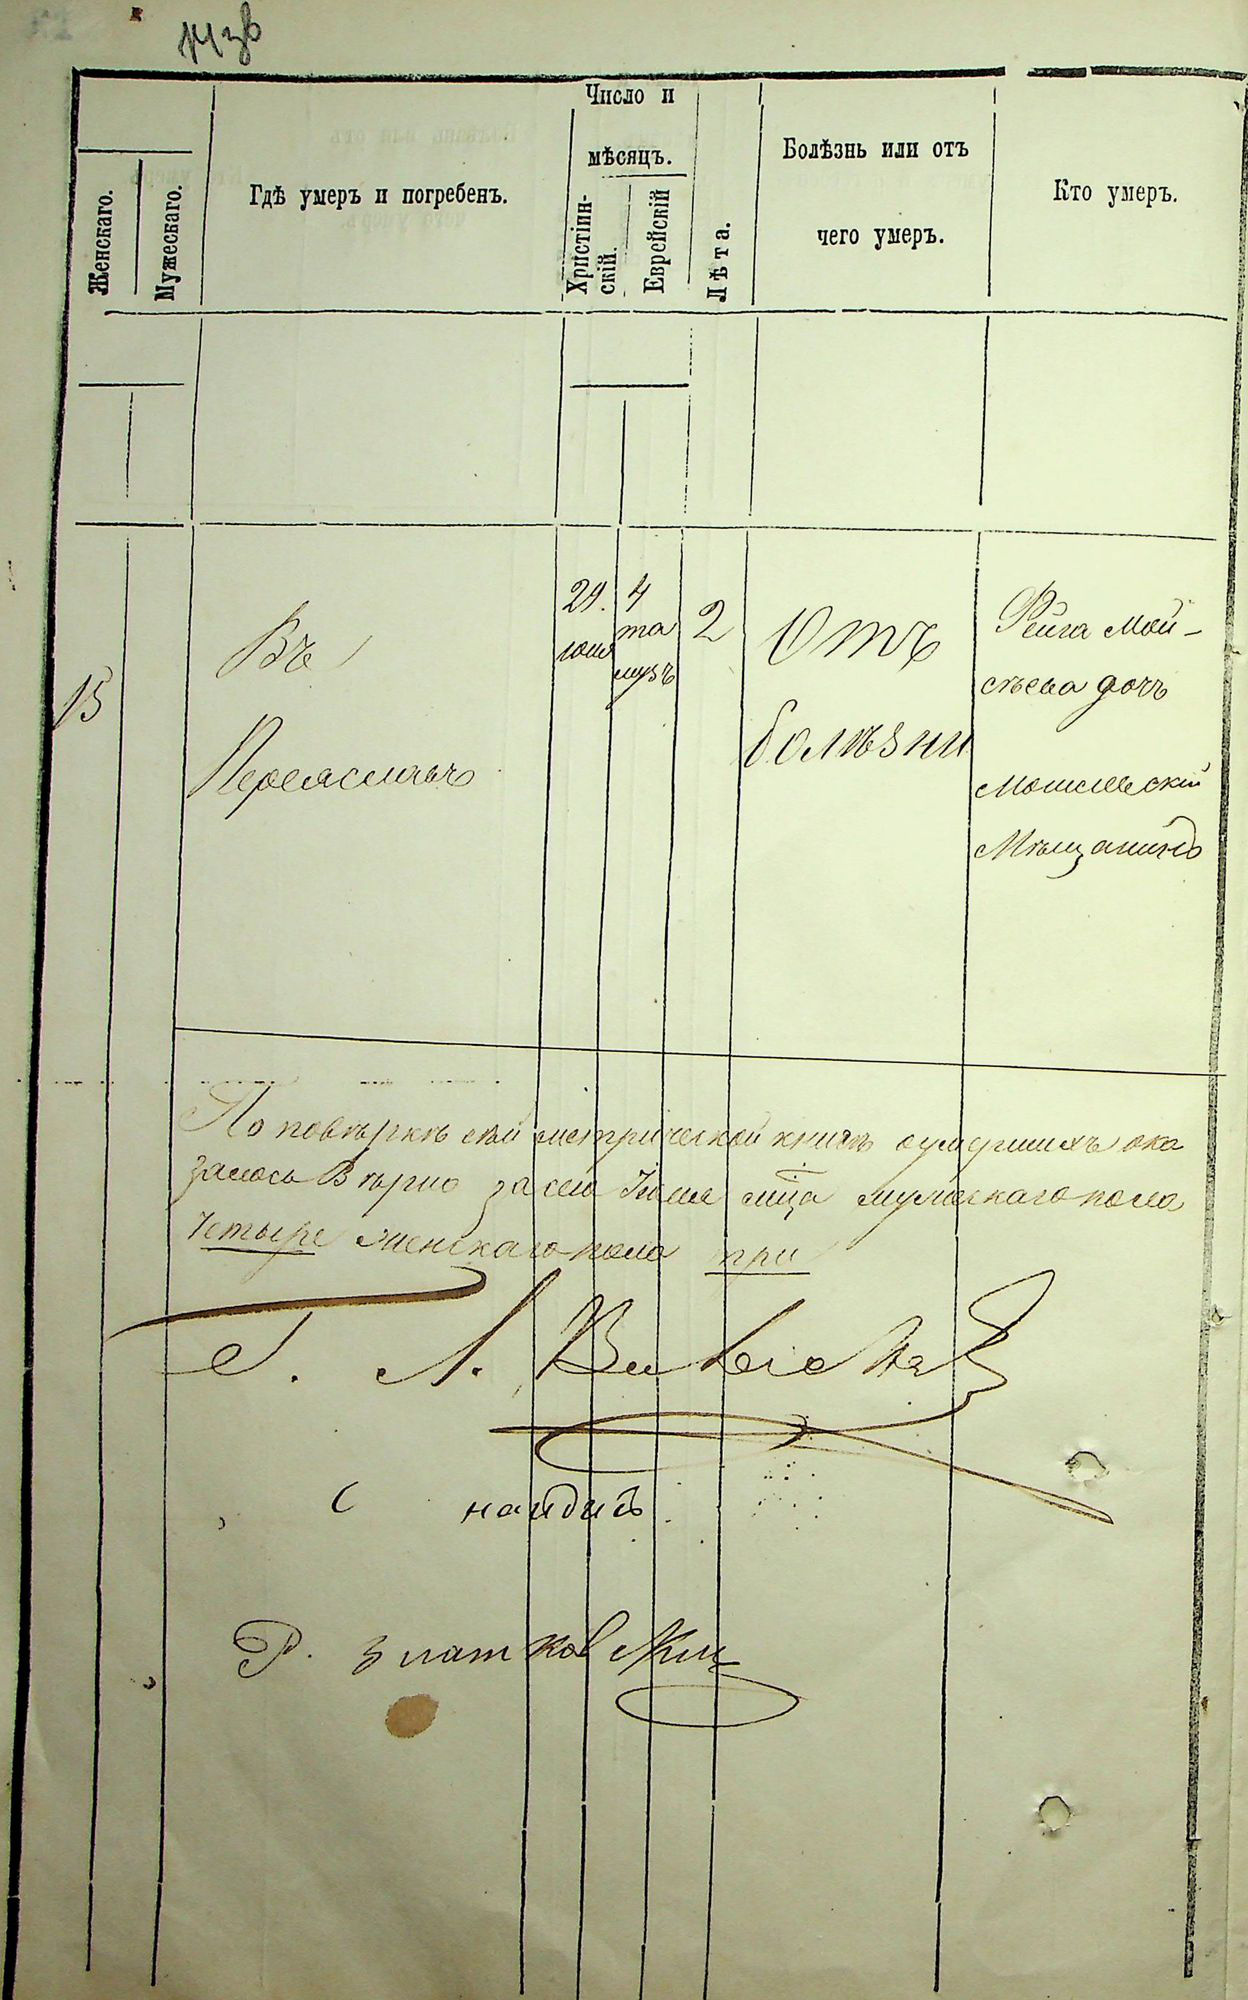 Женскаго.
Мужескаго.
Гдѣ умеръ и погребенъ.
Число и
мѣсяцъ.
Христіян-
скій.
Еврейскій
Лѣта.
Болѣзнь или отъ
чего умеръ.
Кто умеръ.
15
Въ
Переяславъ
4
та
музъ
2
Отъ
болѣзни
Фейга Мой-
сѣева дочь
Мѣщанинъ
По повѣркѣ сей метрической книгѣ оумершихъ ока
залось Вѣрно за сею Іюня мца мужескаго пола
четыре женскаго пола три
Р. Златков